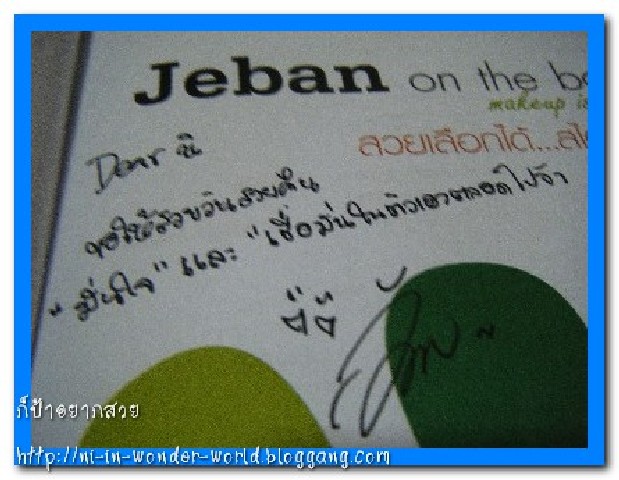 Jeban on the bo
makeup is
สวยเลือกได้...สไ
Dear นิ
ขอให้สวยวันสวยคืน
"มั่นใจ" และ "เชื่อมั่นในตัวเองตลอดไปจ้า
ก็ป้าอยากสวย
http://ni-in-wonder-world.bloggang.com